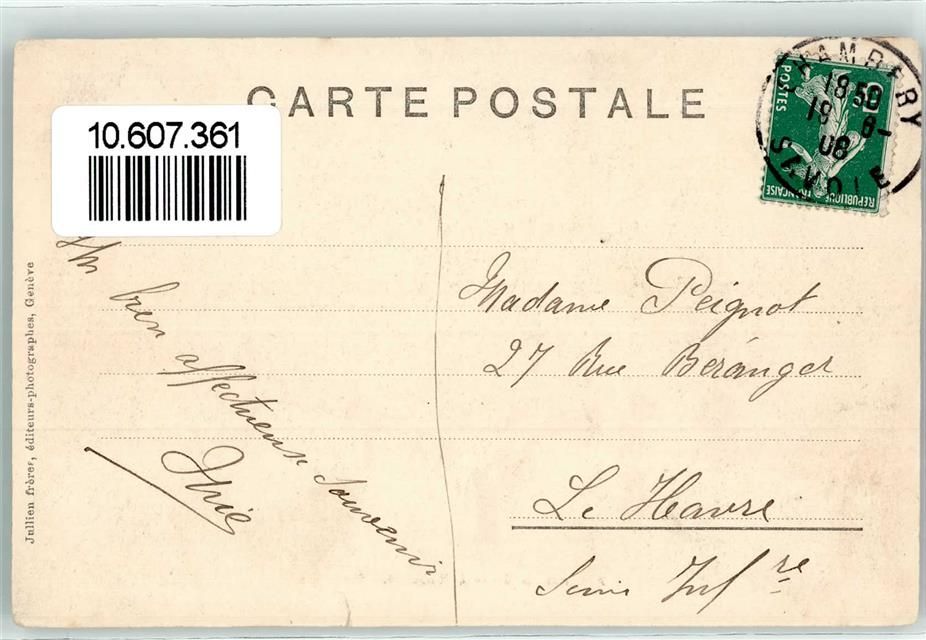 CARTE POSTALE
10.607.361
CHAMBERY
18 50
19 - 8 -
08
SAVOIE
POSTES
REPUBLIQUE FRANÇAISE
Jullien frères, éditeurs-photographes, Genève
bien
affectueux souvenir
Madame Peignot
27 Rue Béranger
Le Havre
Seine Infre